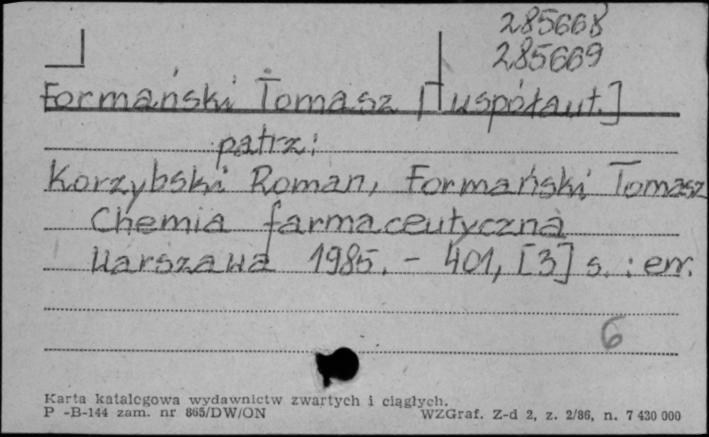 285668
285669
Formański Tomasz [Współaut.]
patrz:
Korzybski Roman, Formański Tomasz
Chemia farmaceutyczna
Warszawa 1985. - 401, [3] s. : err.
6
Karta katalogowa wydawnictw zwartych i ciągłych.
P -B-144 zam. nr 865/DW/ON WZGraf. Z-d 2, z. 2/86, n. 7 430 000